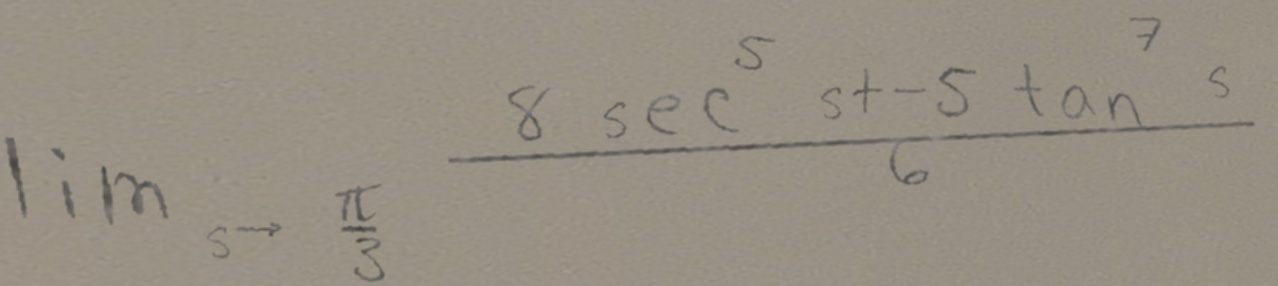 \lim_{s \to \frac{\pi}{3}} \frac{8 \sec^{5} s + -5 \tan^{7} s}{6}